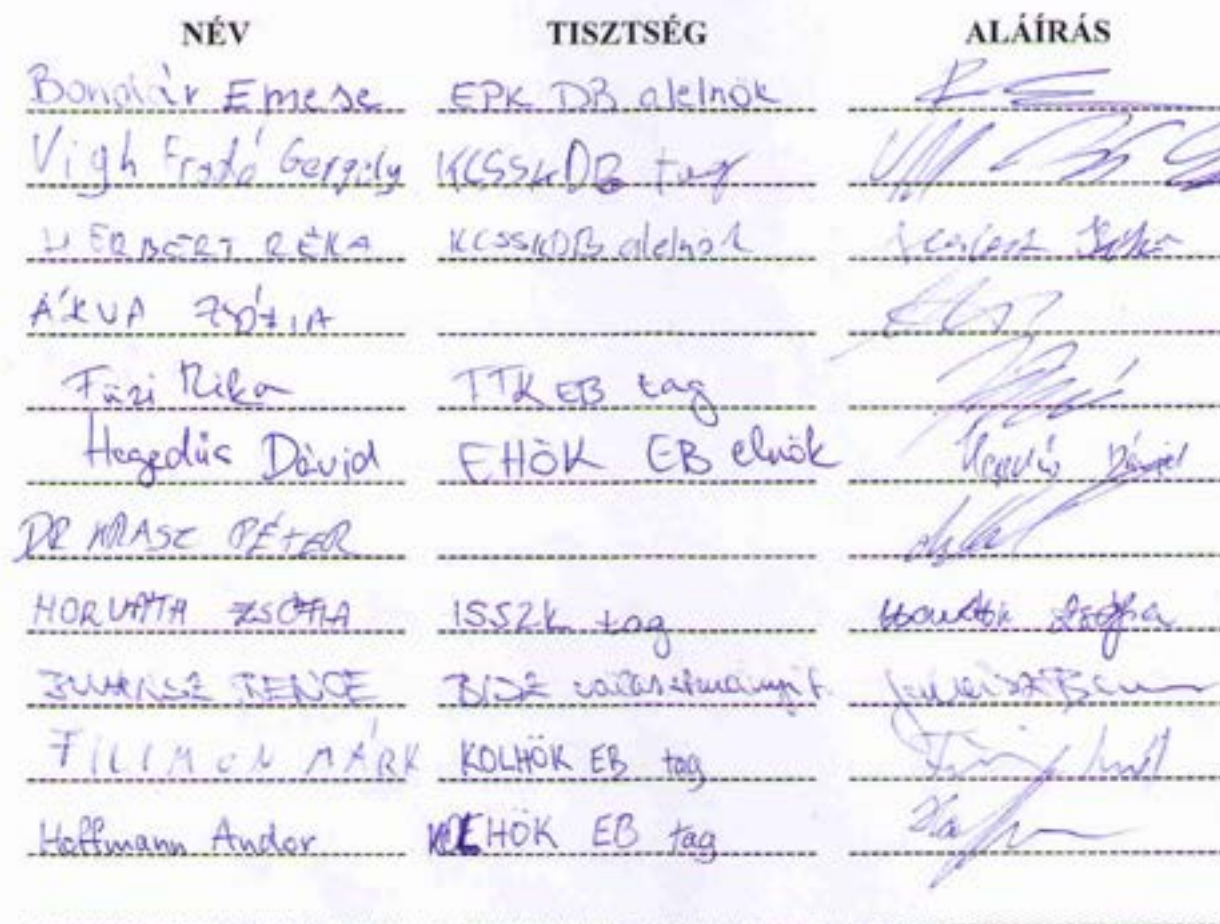 NÉV TISZTSÉG ALÁÍRÁS
Emese EPK DB alelnök
Vigh Fradó Gergely KCSSKDB tag
HERBERT RÉKA KCSSKDB alelnök
ÁKVA ZSÓFIA
Füzi Réka TTK EB tag
Hegedüs Dávid EHÖK EB elnök Hegedüs Dávid
DR KRASZ PÉTER
HORVÁTH ZSÓFIA ISSZK tag Horváth Zsófia
JUHÁSZ BENCE
FILIMON MÁRK KOLHÖK EB tag
Hoffmann Andor EHÖK EB tag